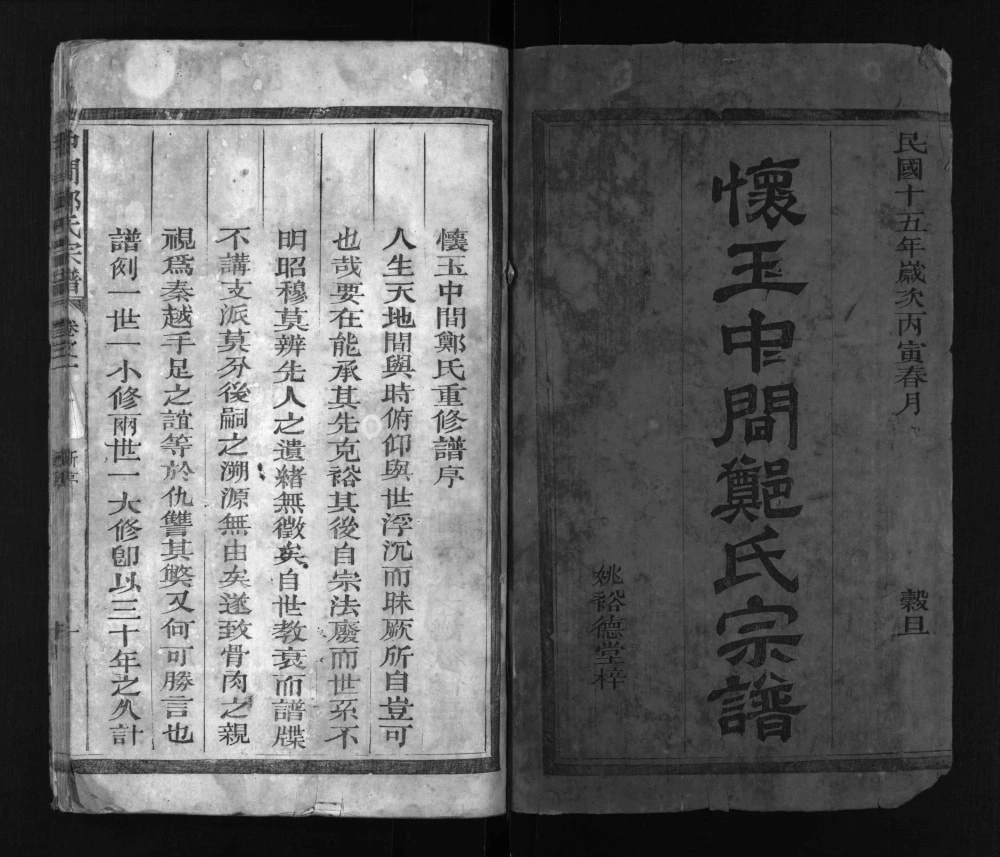 民國十五年歲次丙寅春月 穀旦
懷玉中間鄭氏宗譜
姚裕德堂梓
懷玉中間鄭氏重修譜序
人生天地間與時俯仰與世浮沉而昧厥所自豈可
也哉要在能承其先克裕其後自宗法廢而世系不
明昭穆莫辨先人之遺緒無徵矣自世教衰而譜牒
不講支派莫分後嗣之溯源無由矣遂致骨肉之親
視爲秦越手足之誼等於仇讐其弊又何可勝言也
譜例一世一小修兩世一大修卽以三十年之久計
中間鄭氏宗譜 卷之一 新序 一